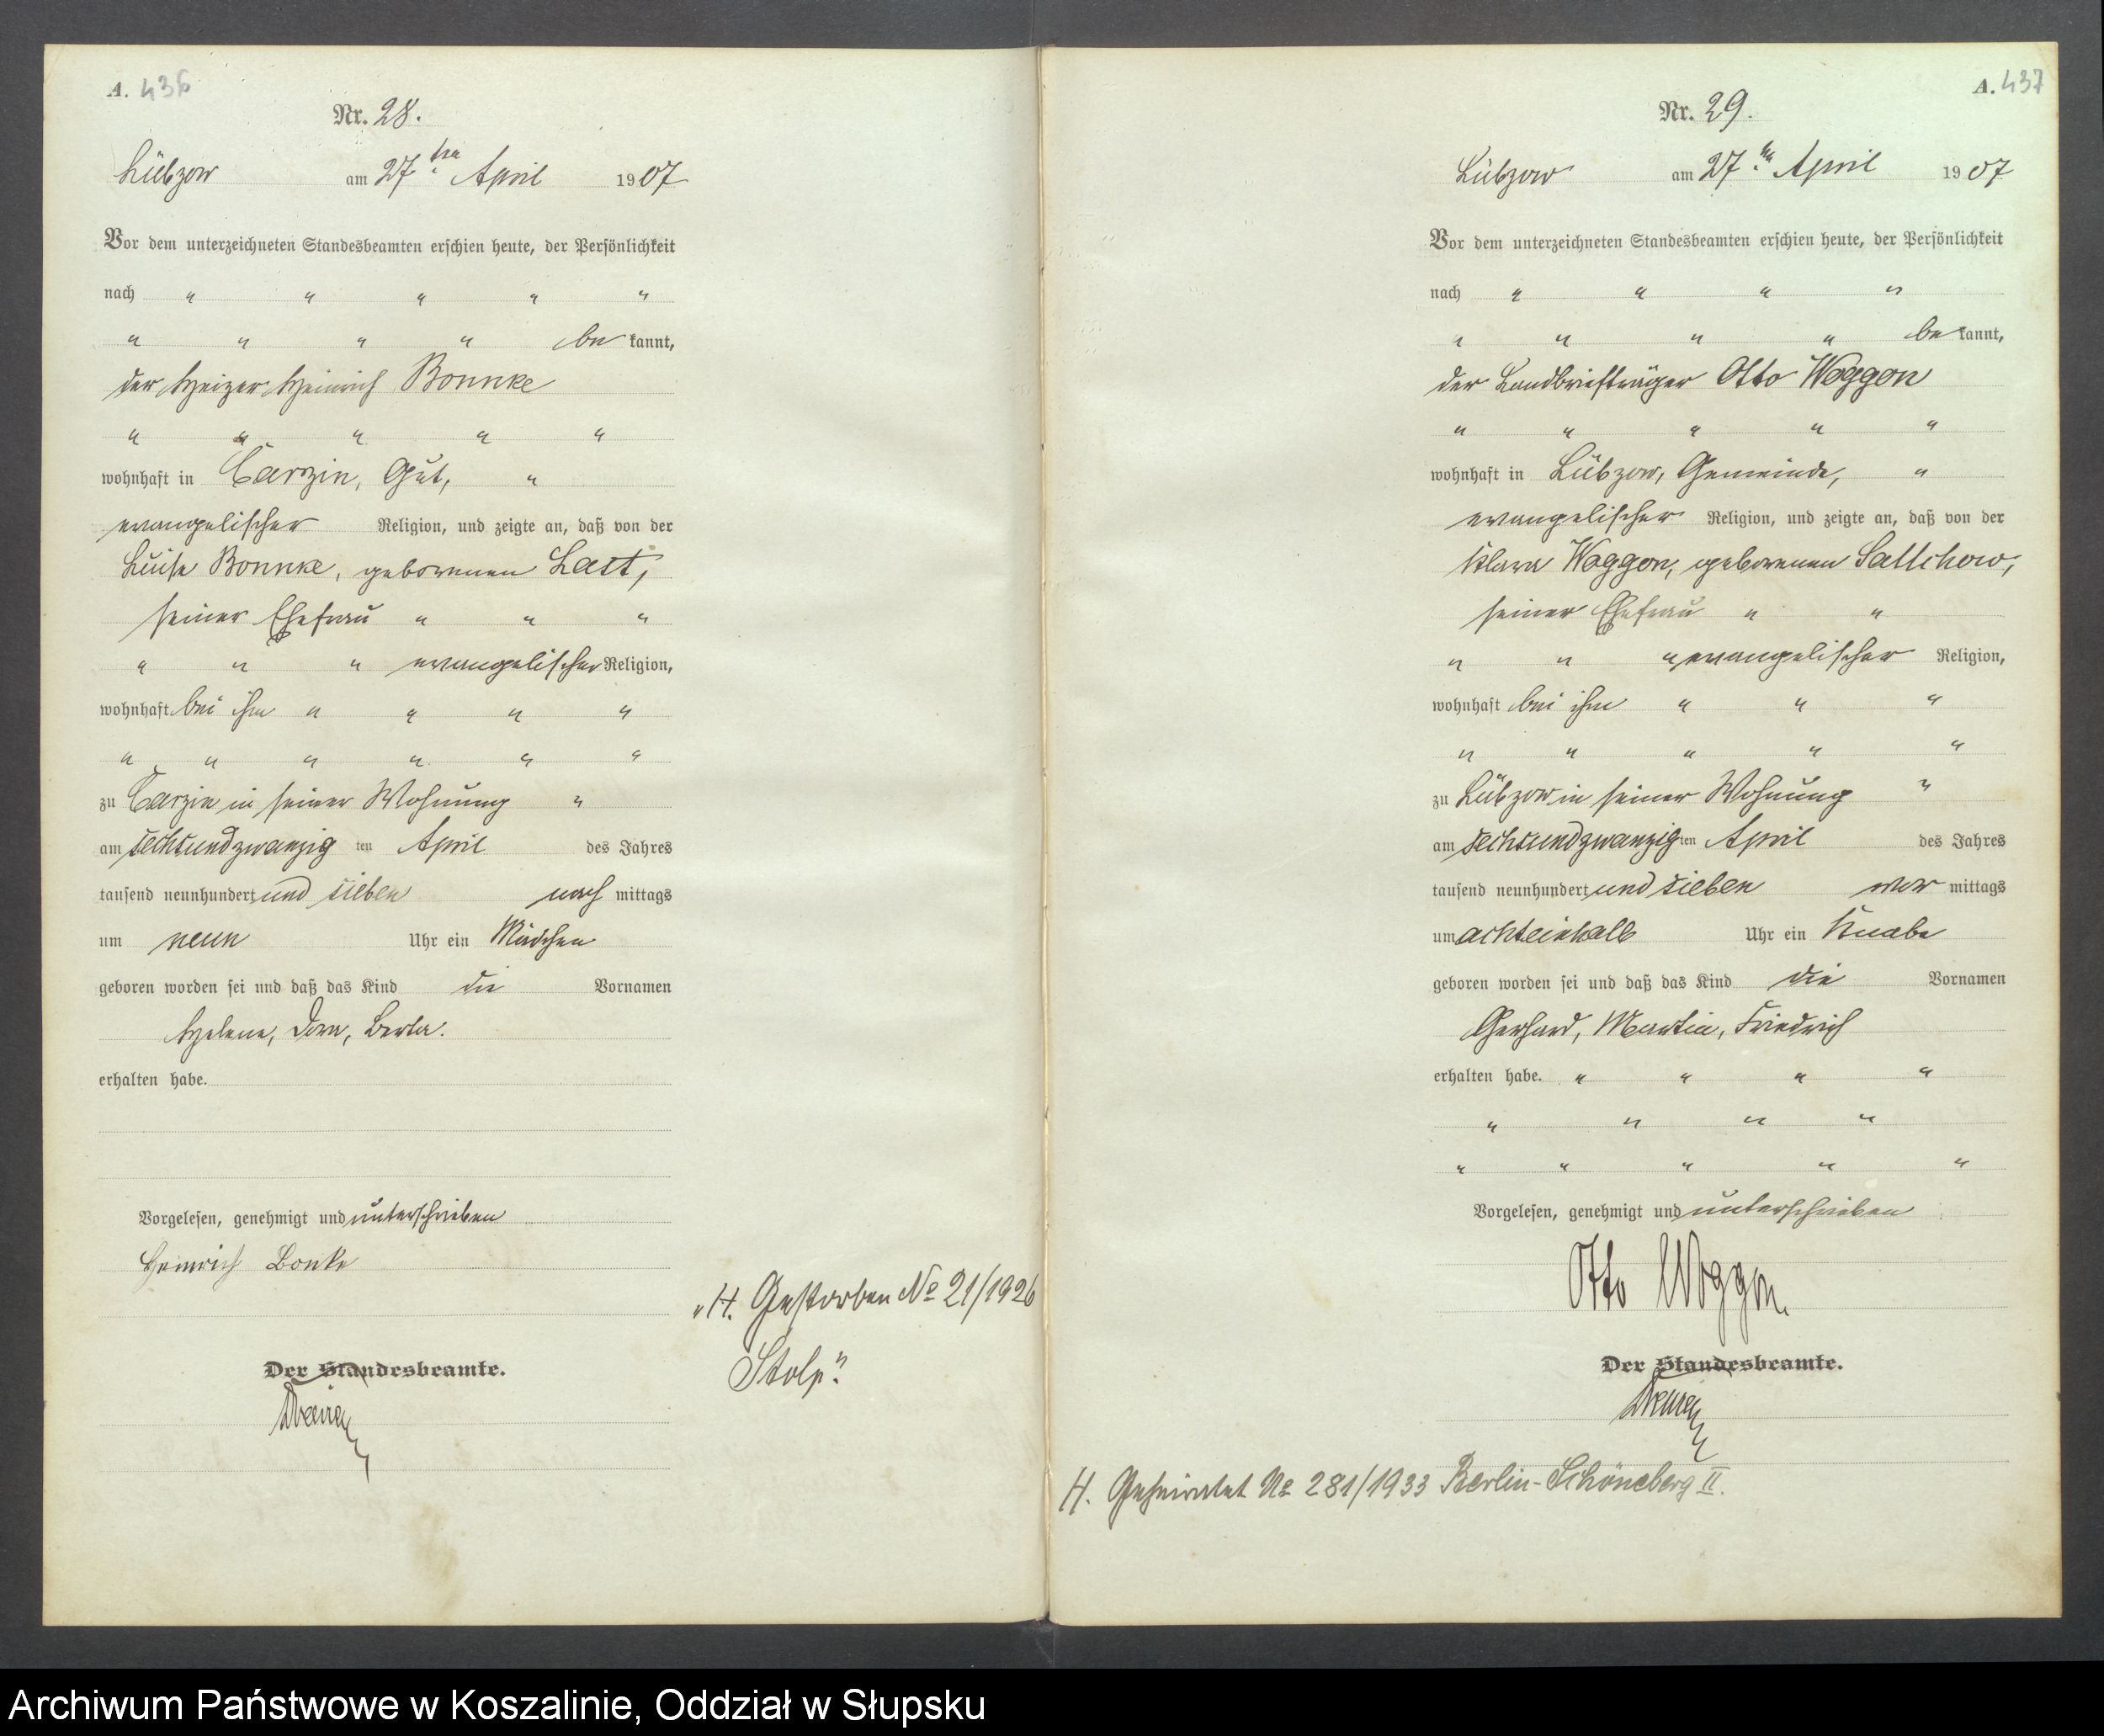 A. 436
Nr. 28.
Lübzow am 27.ten April 1907
Vor dem unterzeichneten Standesbeamten erschien heute, der Persönlichkeit
nach " " " " "
" " " " be kannt,
der Heizer Heinrich Bonnke
" " " " "
wohnhaft in Carzin, Gut, "
evangelischer Religion, und zeigte an, daß von der
Luise Bonnke, geborenen Last,
seiner Ehefrau " " "
" " " evangelischer Religion,
wohnhaft bei ihm " " " "
" " " " " "
zu Carzin in seiner Wohnung "
am sechsundzwanzig ten April des Jahres
tausend neunhundert und sieben nach mittags
um neun Uhr ein Mädchen
geboren worden sei und daß das Kind die Vornamen
Helene, Dora, Berta.
erhalten habe.
Vorgelesen, genehmigt und unterschrieben
Heinrich Bonke
Der Standesbeamte.
"H. Gestorben No 21/1926
Stolp."
A. 437
Nr. 29.
Lübzow am 27.ten April 1907
Vor dem unterzeichneten Standesbeamten erschien heute, der Persönlichkeit
nach " " " "
" " " " be kannt,
der Landbriefträger Otto Woggon
" " " " "
wohnhaft in Lübzow, Gemeinde, "
evangelischer Religion, und zeigte an, daß von der
Klara Woggon, geborenen Sallchow,
seiner Ehefrau " "
" " " evangelischer Religion,
wohnhaft bei ihm " " "
" " " " "
zu Lübzow in seiner Wohnung "
am sechsundzwanzig ten April des Jahres
tausend neunhundert und sieben vor mittags
um achteinhalb Uhr ein Knabe
geboren worden sei und daß das Kind die Vornamen
Gerhard, Martin, Friedrich
erhalten habe. " " " "
" " " "
" " " " "
Vorgelesen, genehmigt und unterschrieben
Otto Woggon.
Der Standesbeamte.
H. Geheiratet No 281/1933 Berlin-Schöneberg II.
Archiwum Państwowe w Koszalinie, Oddział w Słupsku